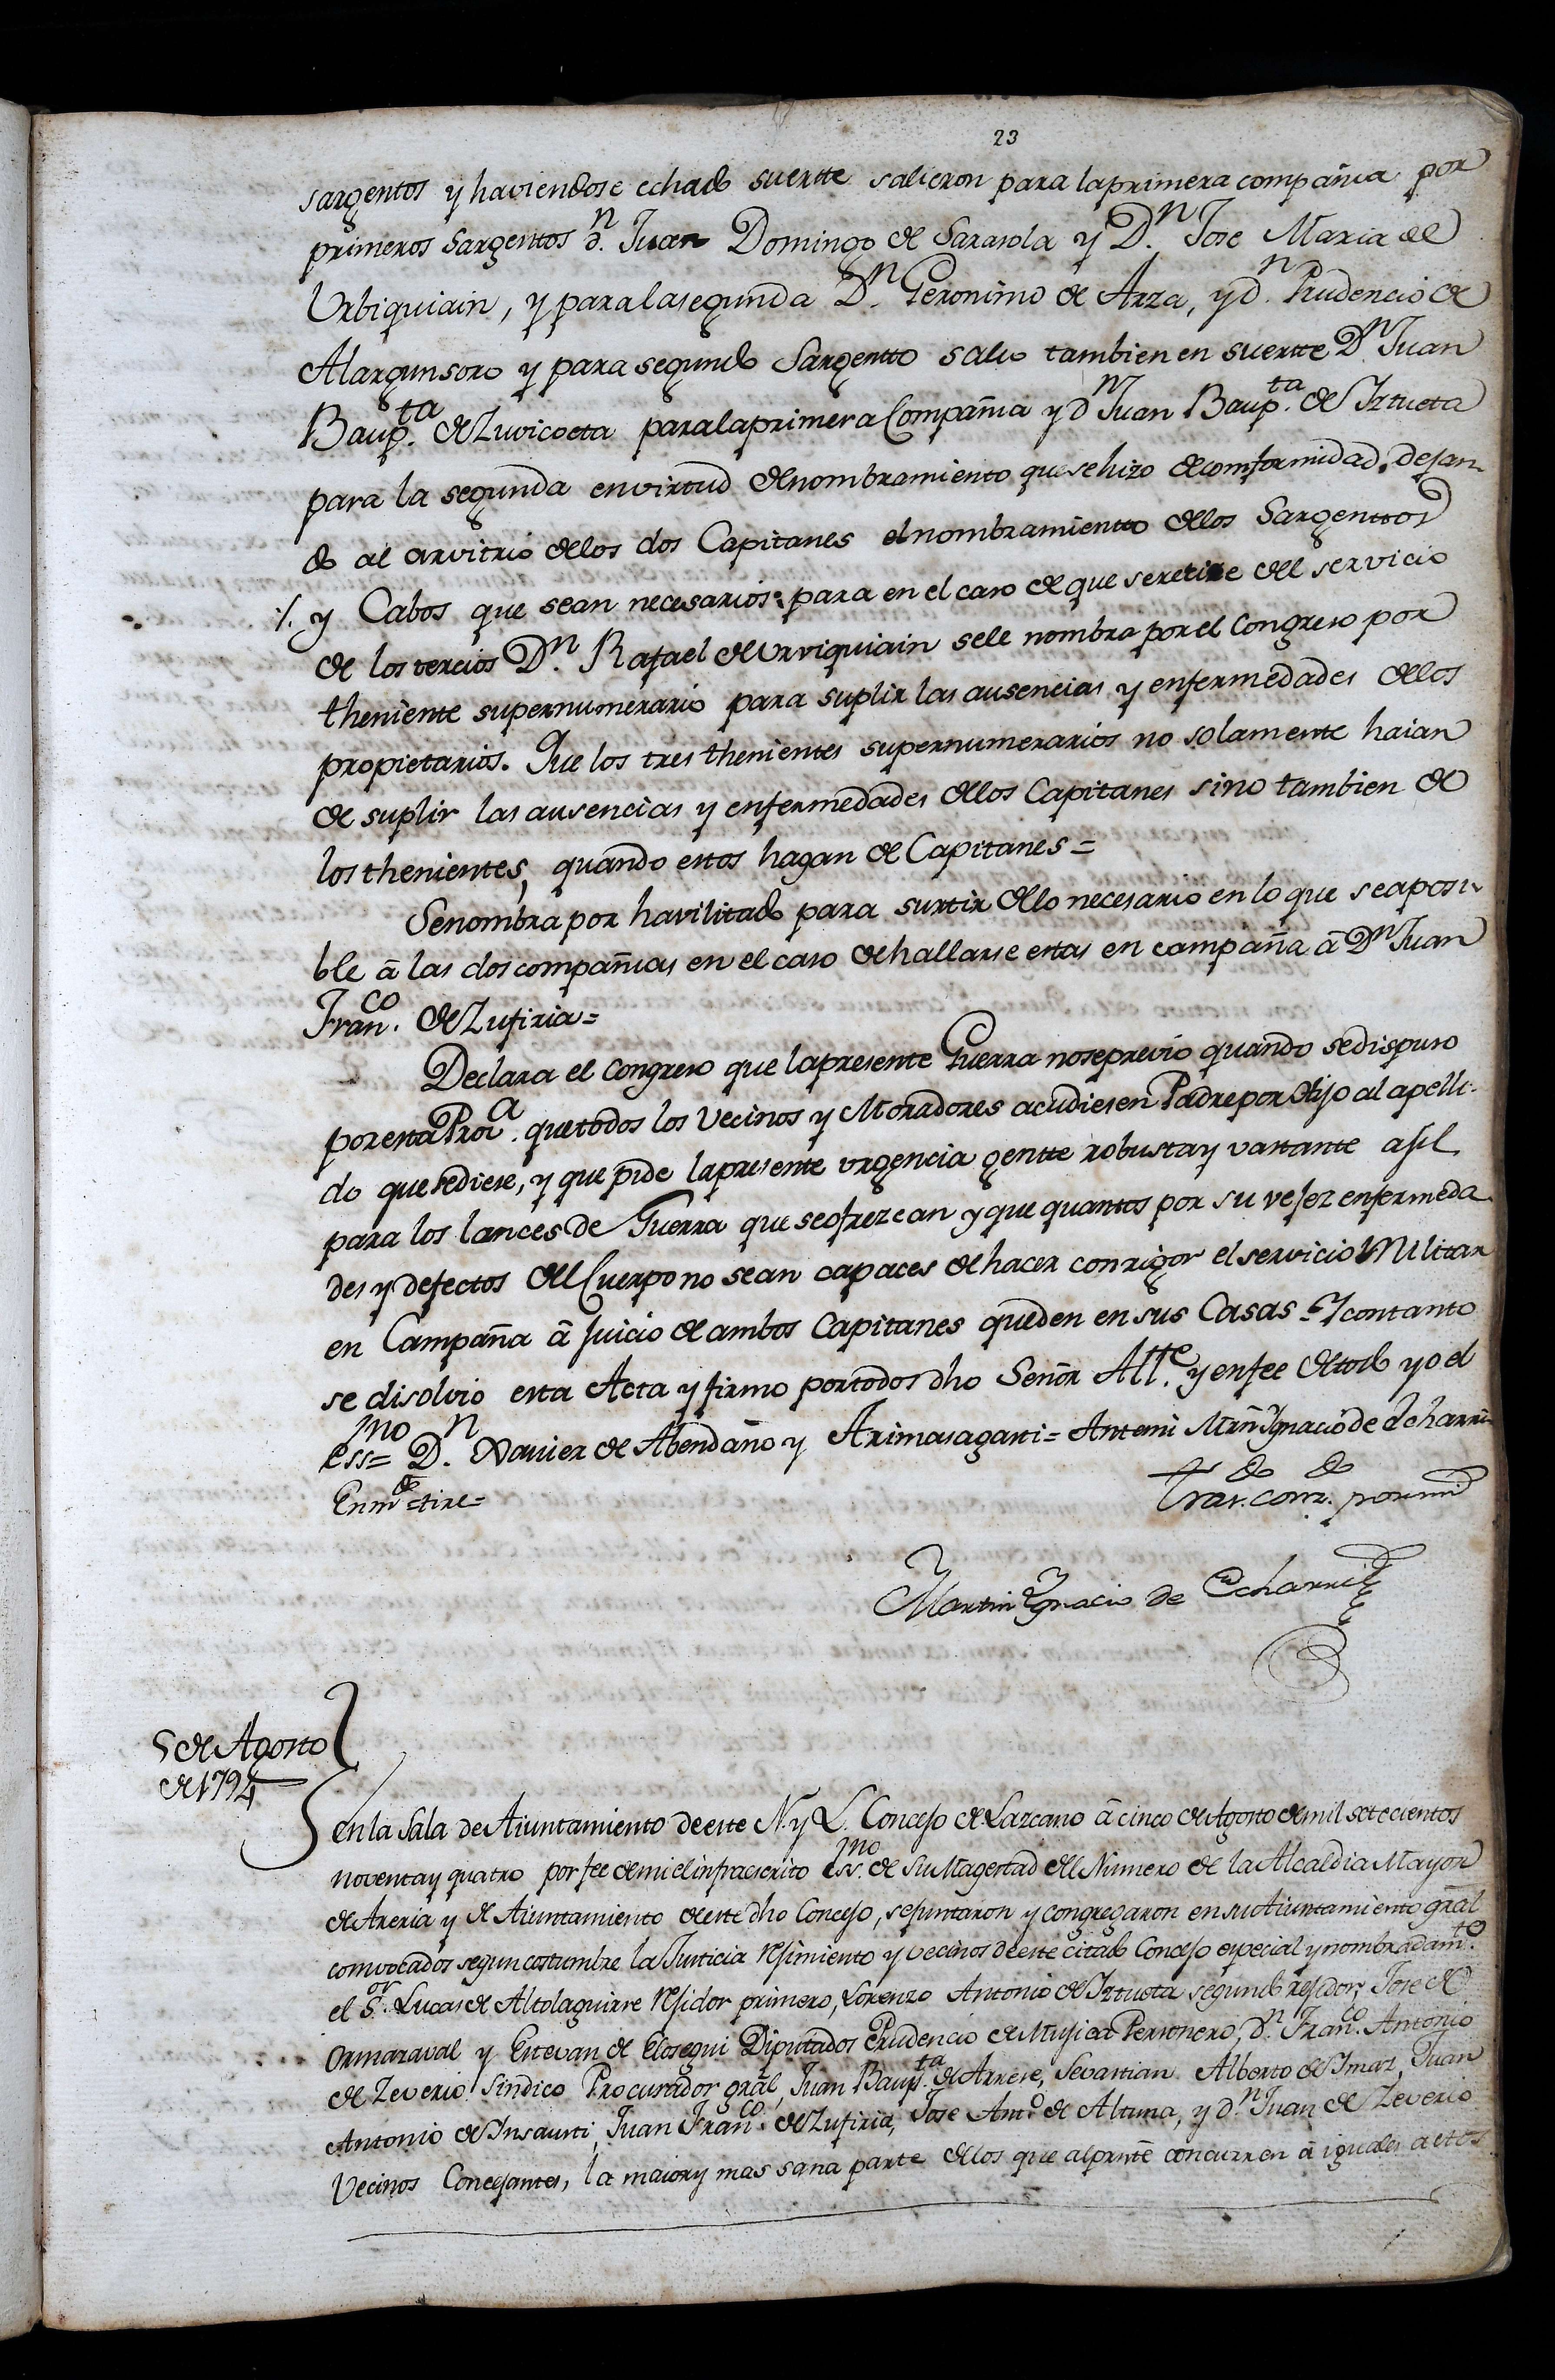 23
sargentos y haviendose echado suertte salieron para la primera compañia por
primeros Sargentos d.n Juan Domingo de Sarasola y D.n Jose Maria de
Urbiquiain, y para la segunda D.n Geronimo de Arza, y d.n Prudencio de
Alargunsoro y para segundo Sargentto salio tambien en suertte D.n Juan
Baup.ta de Zuvicoeta para la primera Compañia y d.n Juan Baup.ta de Iztueta
para la segunda en virtud de nombramiento que se hizo de comformidad, dejan-
do al arvitrio de los dos Capitanes el nombramientto de los Sargenttos
·/. y Cabos que sean necesarios: para en el caso de que se retire del servicio
de los tercios D.n Rafael de Urviquiain se le nombra por el Congreso por
theniente supernumerario para suplir las ausencias y enfermedades de los
propietarios. Que los tres thenientes supernumerarios no solamente haian
de suplir las ausencias y enfermedades de los Capitanes sino tambien de
los thenientes, quando estos hagan de Capitanes =
Se nombra por havilitado para surtir de lo necesario en lo que sea posi-
ble â las dos compañias en el caso de hallarse estas en campaña â D.n Juan
Fran.co de Zufiria =
Declara el congreso que la presente Guerra no se previo quando se dispuso
por esta Prov.a que todos los Vecinos y Moradores acudiesen Padre por Hijo al apelli-
do que se diese, y que pide la presente urgencia gentte robusta y vastante afil
para los lances de Guerra que se ofrezcan y que quantos por su vejez enfermeda-
des y defectos del Cuerpo no sean capaces de hacer con rigor el servicio Militar
en Campaña â Juicio de ambos Capitanes queden en sus Casas = Y con tanto
se disolvio esta Acta y firmo por todos dho Señor All.tte y en fee de todo yo el
ess.mo = D.n Xavier de Abendaño y Arimasagasti = Ante mi Mrn Ygnacio de Echarri =
Enm.do = tire =
Tras. con. por mi
Martin Ygnacio de Echarri
5 de Agosto
de 1794
en la Sala de Aiuntamiento de este N. y L. Concejo de Lazcano â cinco de Agosto de mil setecientos
noventa y quatro por fee de mi el infraescrito ess.mo de su Magestad del Numero de la Alcaldia Mayor
de Areria y de Aiuntamiento de este dho Concejo, se juntaron y congregaron en su Aiuntamiento gral
convocados segun costumbre la Justicia rejimiento y vecinos de este citado Concejo especial y nombradam.te
el S.or Lucas de Altolaguirre rejidor primero, Lorenzo Antonio de Iztueta segundo rejidor, Jose de
Ormazaval y Estevan de Elosegui Diputados Prudencio de Mujica Personero, d.n Fran.co Antonio
de Zeverio Sindico Procurador gral, Juan Baup.ta de Arrese, Sevastian Alberto de Imaz, Juan
Antonio de Insausti, Juan Fran.co de Zufiria, Jose Ant.o de Altuna, y d.n Juan de Zeverio
Vecinos Concejantes, la maior y mas sana parte de los que al prnte concurren â iguales actos